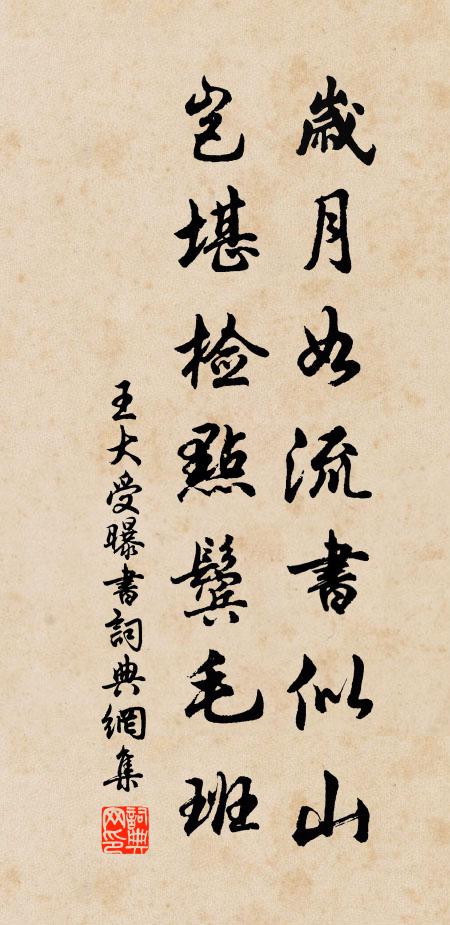 歲月如流書似山
豈堪檢點鬢毛班
王大受曝書詞典網集
詞典网印